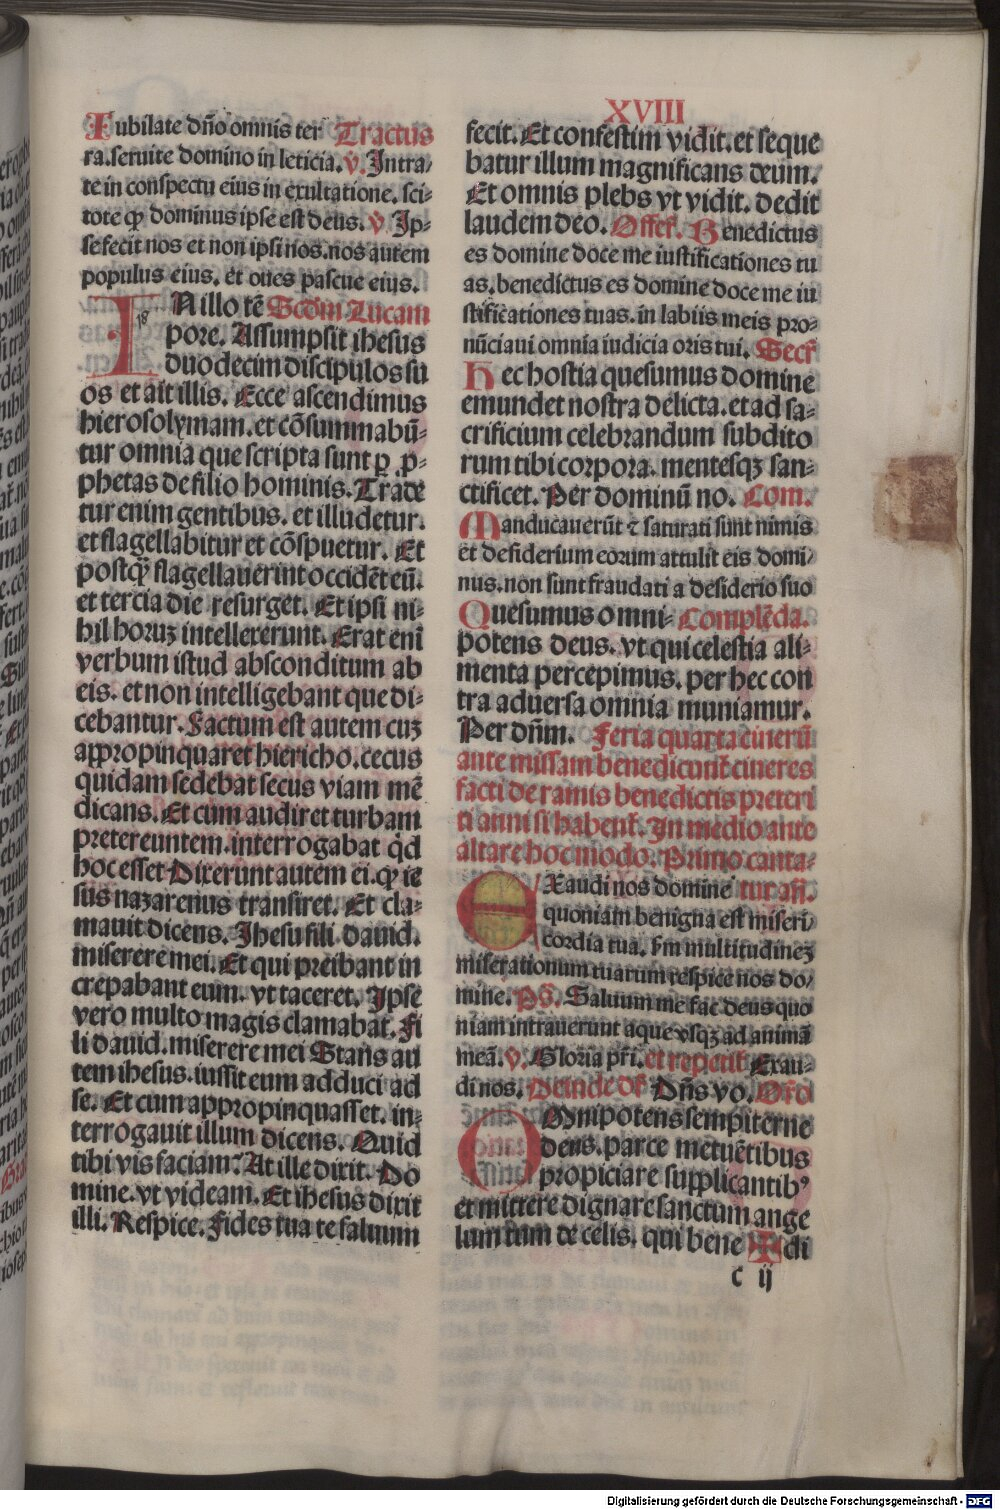 XVIII
Iubilate dño omnis ter Tractus
ra. seruite domino in leticia. v̄. Intra⸗
te in conspectu eius in exultatione. sci⸗
tote ꝙ dominus ipse est deus. v̄ Ip⸗
se fecit nos et non ipsi nos. nos autem
populus eius. et oues pascue eius.
IN illo tē Scdm̄ Lucam
18
pore. Assumpsit ihesus
duodecim discipulos su
os et ait illis. Ecce ascendimus
hierosolymam. et cōsummabū⸗
tur omnia que scripta sunt ꝑ ꝓ⸗
phetas de filio hominis. Tradē
tur enim gentibus. et illudetur.
et flagellabitur et cōspuetur. Et
postꝙ̄ flagellauerint occidēt eū.
et tercia die resurget. Et ipsi ni⸗
hil horuꝫ intellexerunt. Erat enī
verbum istud absconditum ab
eis. et non intelligebant que di⸗
cebantur. Factum est autem cuꝫ
appropinquaret hiericho. cecus
quidam sedebat secus viam mē
dicans. Et cum audiret turbam
pretereuntem. interrogabat q̇d
hoc esset Dixerunt autem ei. ꝙ ie
sus nazarenus transiret. Et cla⸗
mauit dicens. Ihesu fili dauid.
miserere mei. Et qui preibant in
crepabant eum. vt taceret. Ipse
vero multo magis clamabat. Fi
li dauid. miserere mei Stans au
tem ihesus. iussit eum adduci ad
se. Et cum appropinquasset. in⸗
terrogauit illum dicens. Quid
tibi vis faciam? At ille dixit. Do
mine. vt videam. Et ihesus dixit
illi. Respice. Fides tua te saluum
fecit. Et confestim vidit. et seque
batur illum magnificans deum.
Et omnis plebs vt vidit. dedit
laudem deo. Offeꝛ̄. Benedictus
es domine doce me iustificationes tu
as. benedictus es domine doce me iu
stificationes tuas. in labiis meis pro⸗
nūciaui omnia iudicia oris tui. Secꝛ̄
Hec hostia quesumus domine
emundet nostra delicta. et ad sa⸗
crificium celebrandum subdito
rum tibi corpora. mentesqꝫ san⸗
ctificet. Per dominū no. Com.
Manducauerūt ⁊ saturati sunt nimis
et desiderium eorum attulit eis domi⸗
nus. non sunt fraudati a desiderio suo
Quesumus omni⸗ Complēda.
potens deus. vt qui celestia ali⸗
menta percepimus. per hec con
tra aduersa omnia muniamur.
Per dñm. Feria quarta cinerū
ante missam benedicunt̄ cineres
facti de ramis benedictis preteri
ti anni si habent̄. In medio ante
altare hoc modo. Primo canta⸗
EXaudi nos domine tur añ.
quoniam benigna est miseri
cordia tua. fm multitudinēꝫ
miserationum tuarum respice nos do⸗
mine. Ps̄. Saluum me fac deus quo
niam intrauerunt aque vsqꝫ ad animā
meā. v̄. Gloria pr̄i. et repetit̄ Exau⸗
di nos. Deinde dꝛ̄ Dñs vo. Oꝛ̄o
OMnipotens sempiterne
deus. parce metuētibus
propiciare supplicantibꝰ
et mittere dignare sanctum ange
lum tuum de celis. qui bene ✠ di
c ij
Digitalisierung gefördert durch die Deutsche Forschungsgemeinschaft - DFG